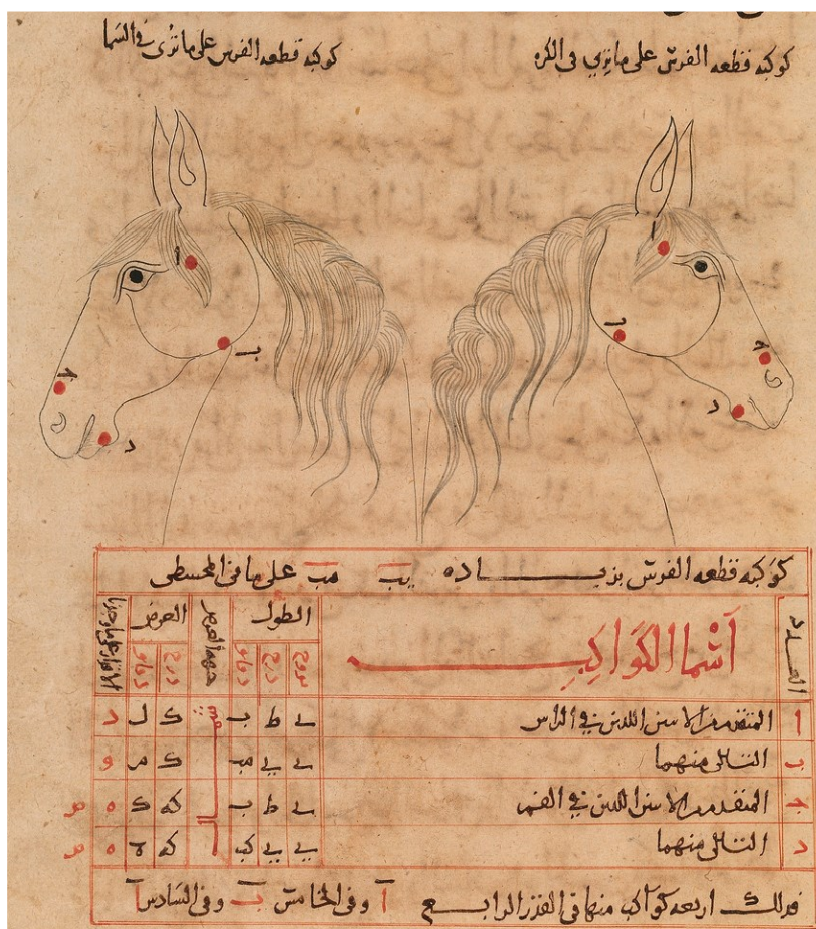 كوكبه قطعه الفرس على ما يرى فى الكره
كوكبه قطعه الفرس على ما ترى فى السما
ا
ب
ح
د
ا
ب
ح
د
كوكبه قطعه الفرس بزيـــاده يب مب على ما فى المجسطى
العدد
أسما الكواكب
الطول
بروج درج دقايق
جهة العرض
العرض
درج دقايق
ا المتقدم من الاسن اللدين فى الراس ى ط ب ك ل د
ب التالى منهما ى يى مب ك م و
ج المتقدم من الاسن اللدين فى الفم ى ط ب كه ك ه
د التالى منهما ى يى كب كه ه ه
فدلك اربعه كواكب منها فى القدر الرابع ا وفى الخامس ب وفى السادس ا